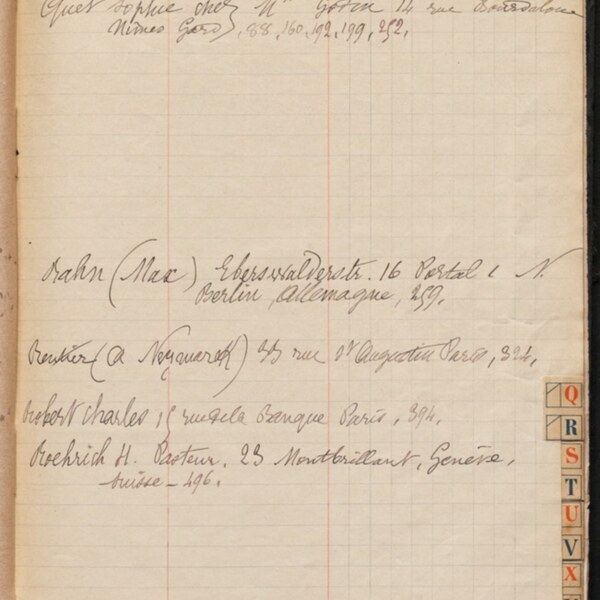 Quet Sophie chez Mr Godin 14 rue Bourdaloue
Nîmes Gard, 88, 160, 192, 199, 252,
Rahn (Max) Eberswalderstr. 16 Portal 1 N.
Berlin Allemagne, 259,
(A Neymarck) 33 rue St Augustin Paris, 324,
Robert Charles 15 rue de la Banque Paris, 394,
Roehrich H. Pasteur, 23 Montbrillant, Genève,
Suisse – 496.
Q
R
S
T
U
V
X